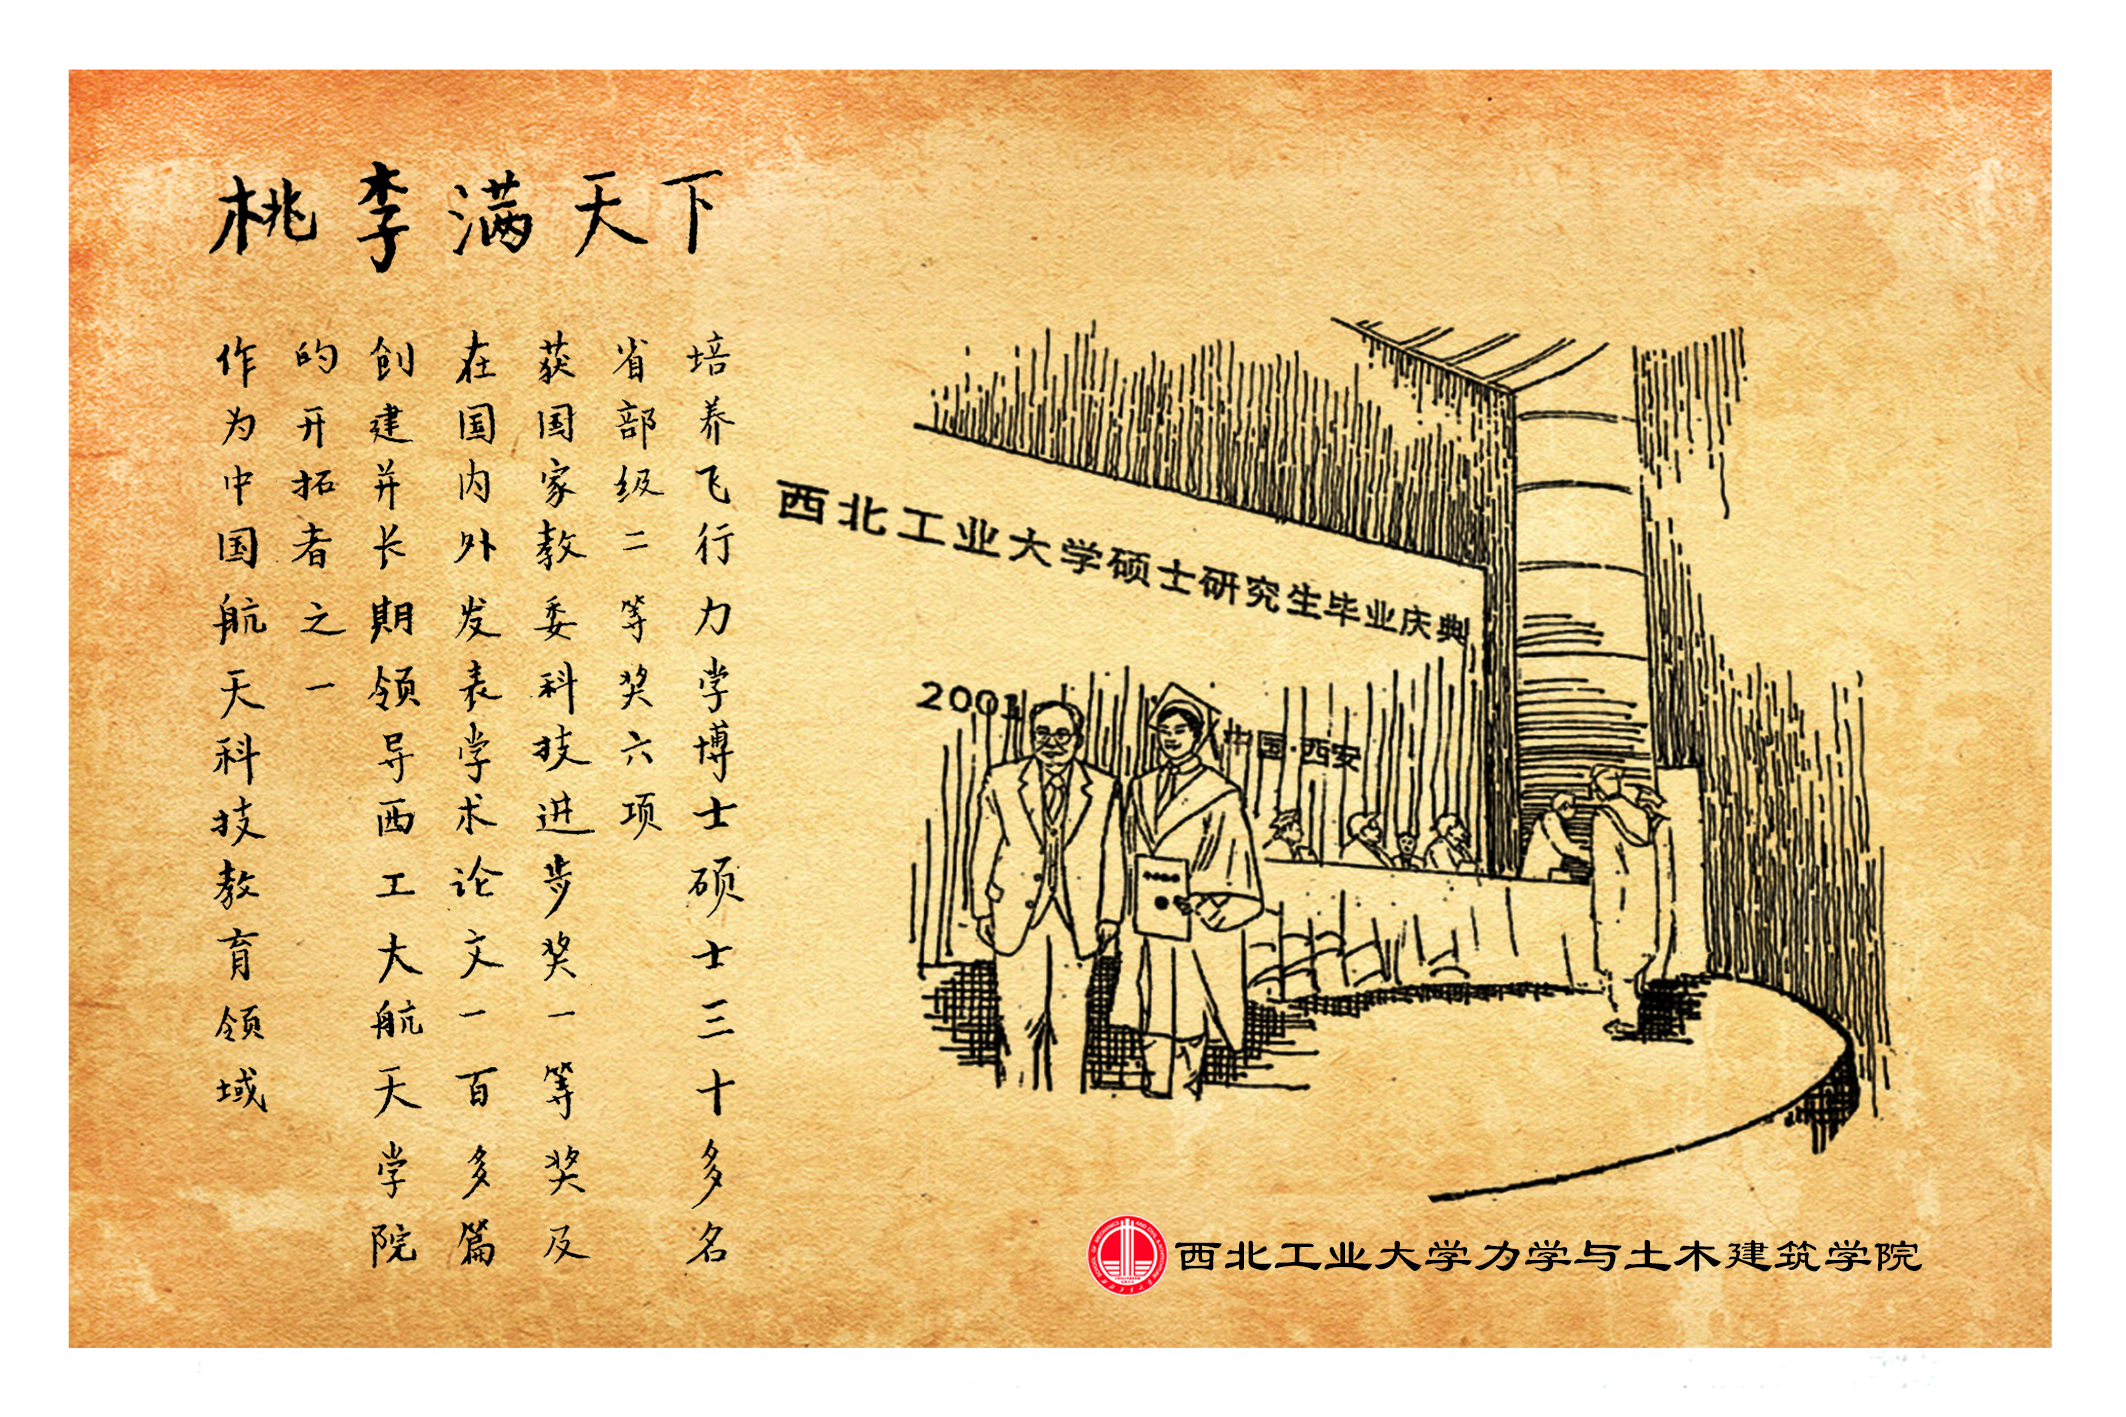 桃李满天下
作为中国航天科技教育领域
的开拓者之一
创建并长期领导西工大航天学院
在国内外发表学术论文一百多篇
获国家教委科技进步奖一等奖及
省部级二等奖六项
培养飞行力学博士硕士三十多名
西北工业大学硕士研究生毕业庆典
2001
中国·西安
西北工业大学力学与土木建筑学院